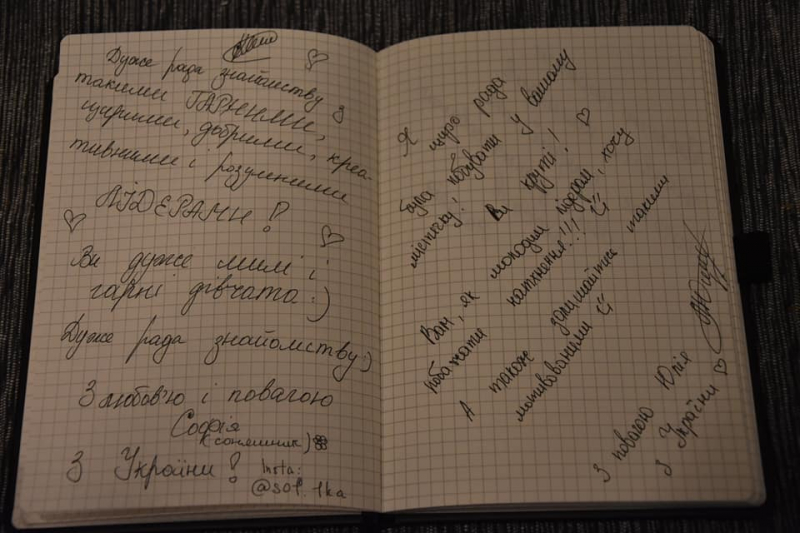 Дуже рада знайомству з
такими ГАРНИМИ,
щирими, добрими, креа-
тивними і розумними
ЛІДЕРАМИ!
Ви дуже милі і
гарні дівчата :)
Дуже рада знайомству :)
З любов'ю і повагою
Софія
(сонешник)
З України! Insta:
@sof.1ka
Я щиро рада
була побувати у вашому
містечку! Ви круті!
Вам, як молодим лідерам, хочу
побажати натхнення!!!
А також залишайтись такими
мотивованими
З повагою Юлія
з України